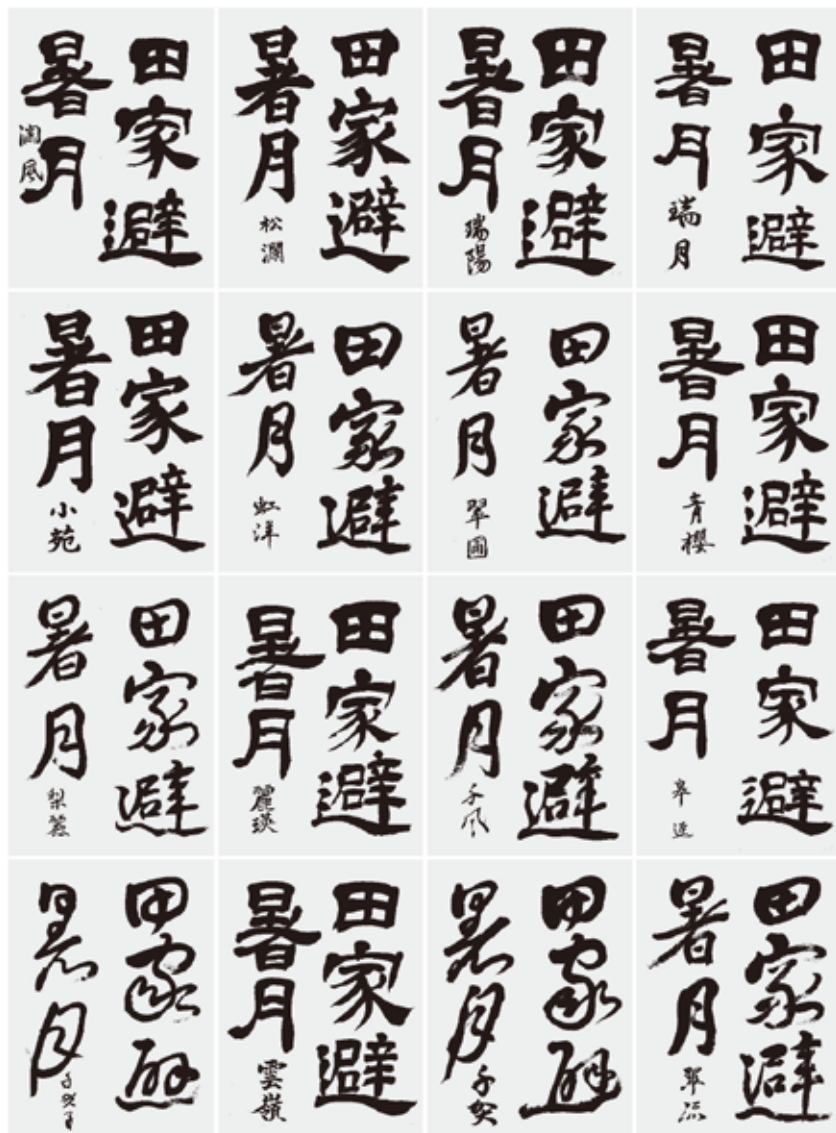 田家避
暑月
田家避
暑月
松瀾
田家避
暑月
瑞陽
田家避
暑月
瑞月
田家避
暑月
小苑
田家避
暑月
虹洋
田家避
暑月
翠圃
田家避
暑月
青櫻
田家避
暑月
田家避
暑月
麗瑛
田家避
暑月
千風
田家避
暑月
田家避
暑月
田家避
暑月
雲嶺
田家避
暑月
田家避
暑月
翠流